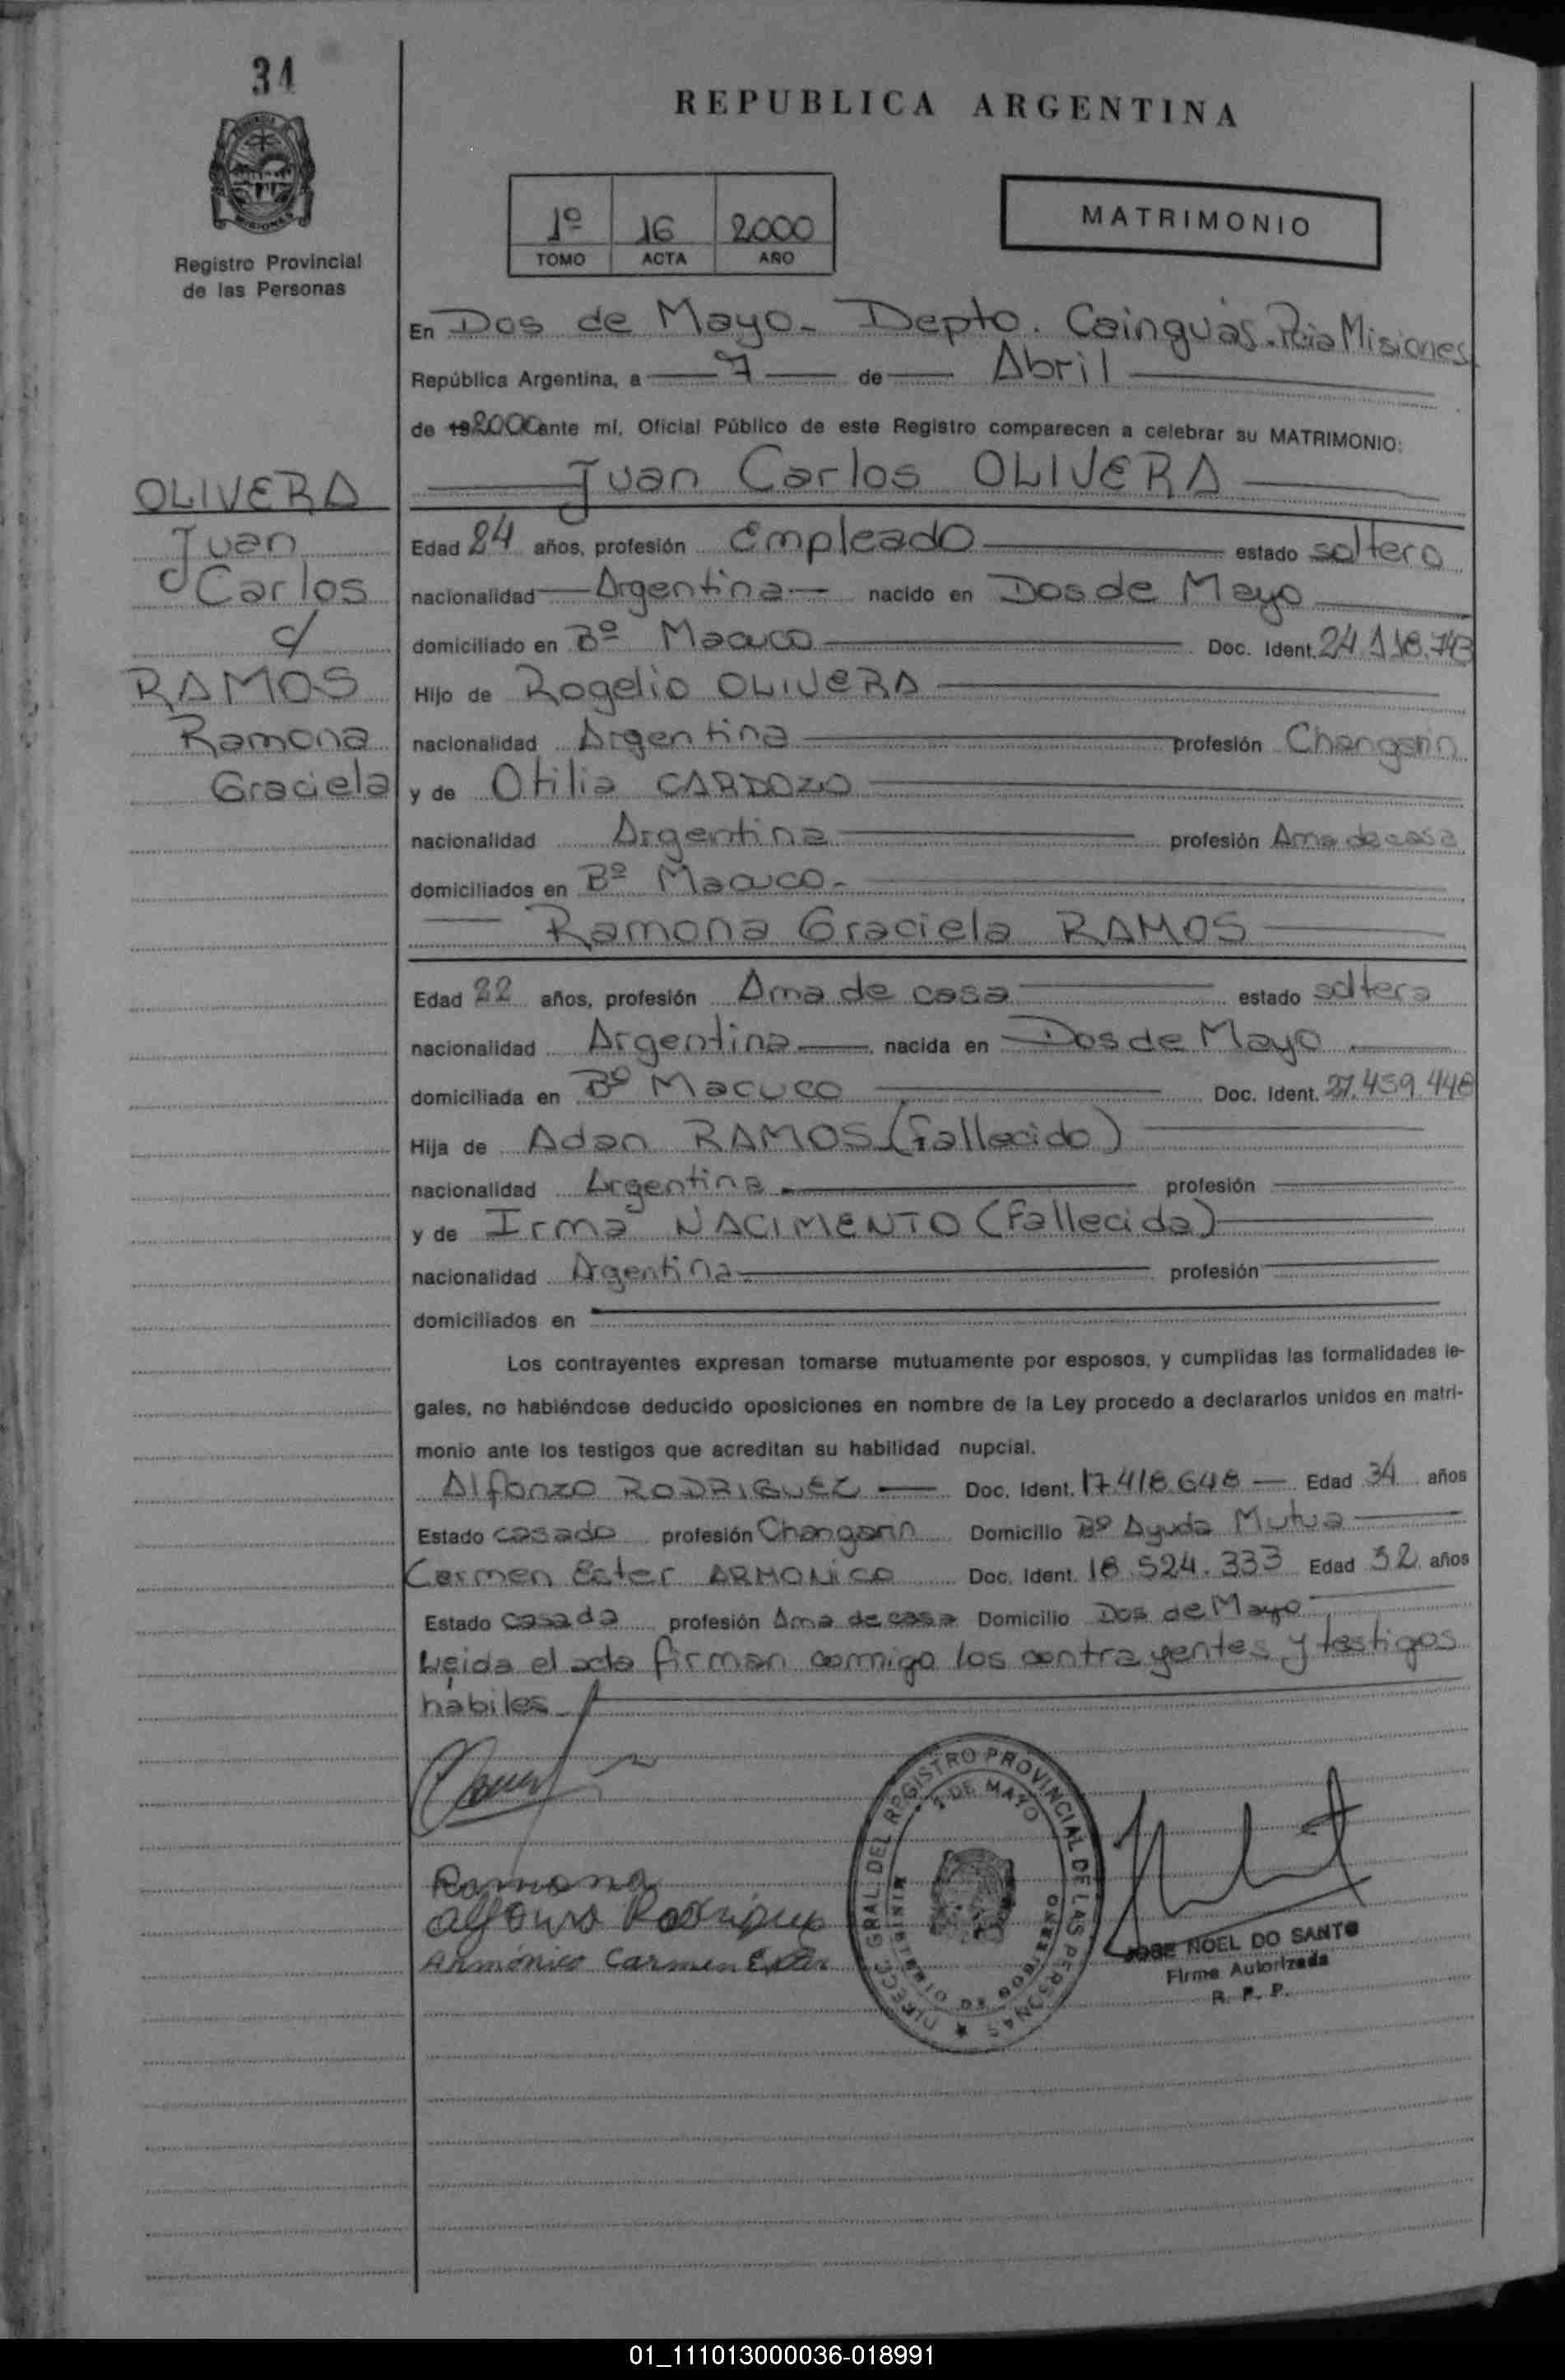 34
REPUBLICA ARGENTINA
MISIONES
Registro Provincial
de las Personas
1º 16 2000
TOMO ACTA AÑO
MATRIMONIO
En Dos de Mayo - Depto. Cainguás. Pcia Misiones
República Argentina, a 7 de Abril
de 19 2000 ante mí, Oficial Público de este Registro comparecen a celebrar su MATRIMONIO:
Juan Carlos OLIVERA
OLIVERA
Juan
Carlos
c/
RAMOS
Ramona
Graciela
Edad 24 años, profesión Empleado estado soltero
nacionalidad Argentina nacido en Dos de Mayo
domiciliado en Bº Macuco Doc. Ident. 24.118.743
Hijo de Rogelio OLIVERA
nacionalidad Argentina profesión Changarin
y de Otilia CARDOZO
nacionalidad Argentina profesión Ama de casa
domiciliados en Bº Macuco.-
Ramona Graciela RAMOS
Edad 22 años, profesión Ama de casa estado soltera
nacionalidad Argentina nacida en Dos de Mayo
domiciliada en Bº Macuco Doc. Ident. 27.459.448
Hija de Adan RAMOS (fallecido)
nacionalidad Argentina profesión
y de Irma NACIMENTO (fallecida)
nacionalidad Argentina profesión
domiciliados en
Los contrayentes expresan tomarse mutuamente por esposos, y cumplidas las formalidades le-
gales, no habiéndose deducido oposiciones en nombre de la Ley procedo a declararlos unidos en matri-
monio ante los testigos que acreditan su habilidad nupcial.
Alfonzo RODRIGUEZ Doc. Ident. 17.418.648 Edad 34 años
Estado casado profesión Changarin Domicilio Bº Ayuda Mutua
Carmen Ester ARMONICO Doc. Ident. 18.524.333 Edad 32 años
Estado casada profesión Ama de casa Domicilio Dos de Mayo
Leida el acta firman conmigo los contrayentes y testigos
habiles
Ramona
Alfonso Rodriguez
Armónico Carmen Ester
DIRECC. GRAL. DEL REGISTRO PROVINCIAL DE LAS PERSONAS
2 DE MAYO
JOSE NOEL DO SANTO
Firma Autorizada
R. P. P.
01_111013000036-018991